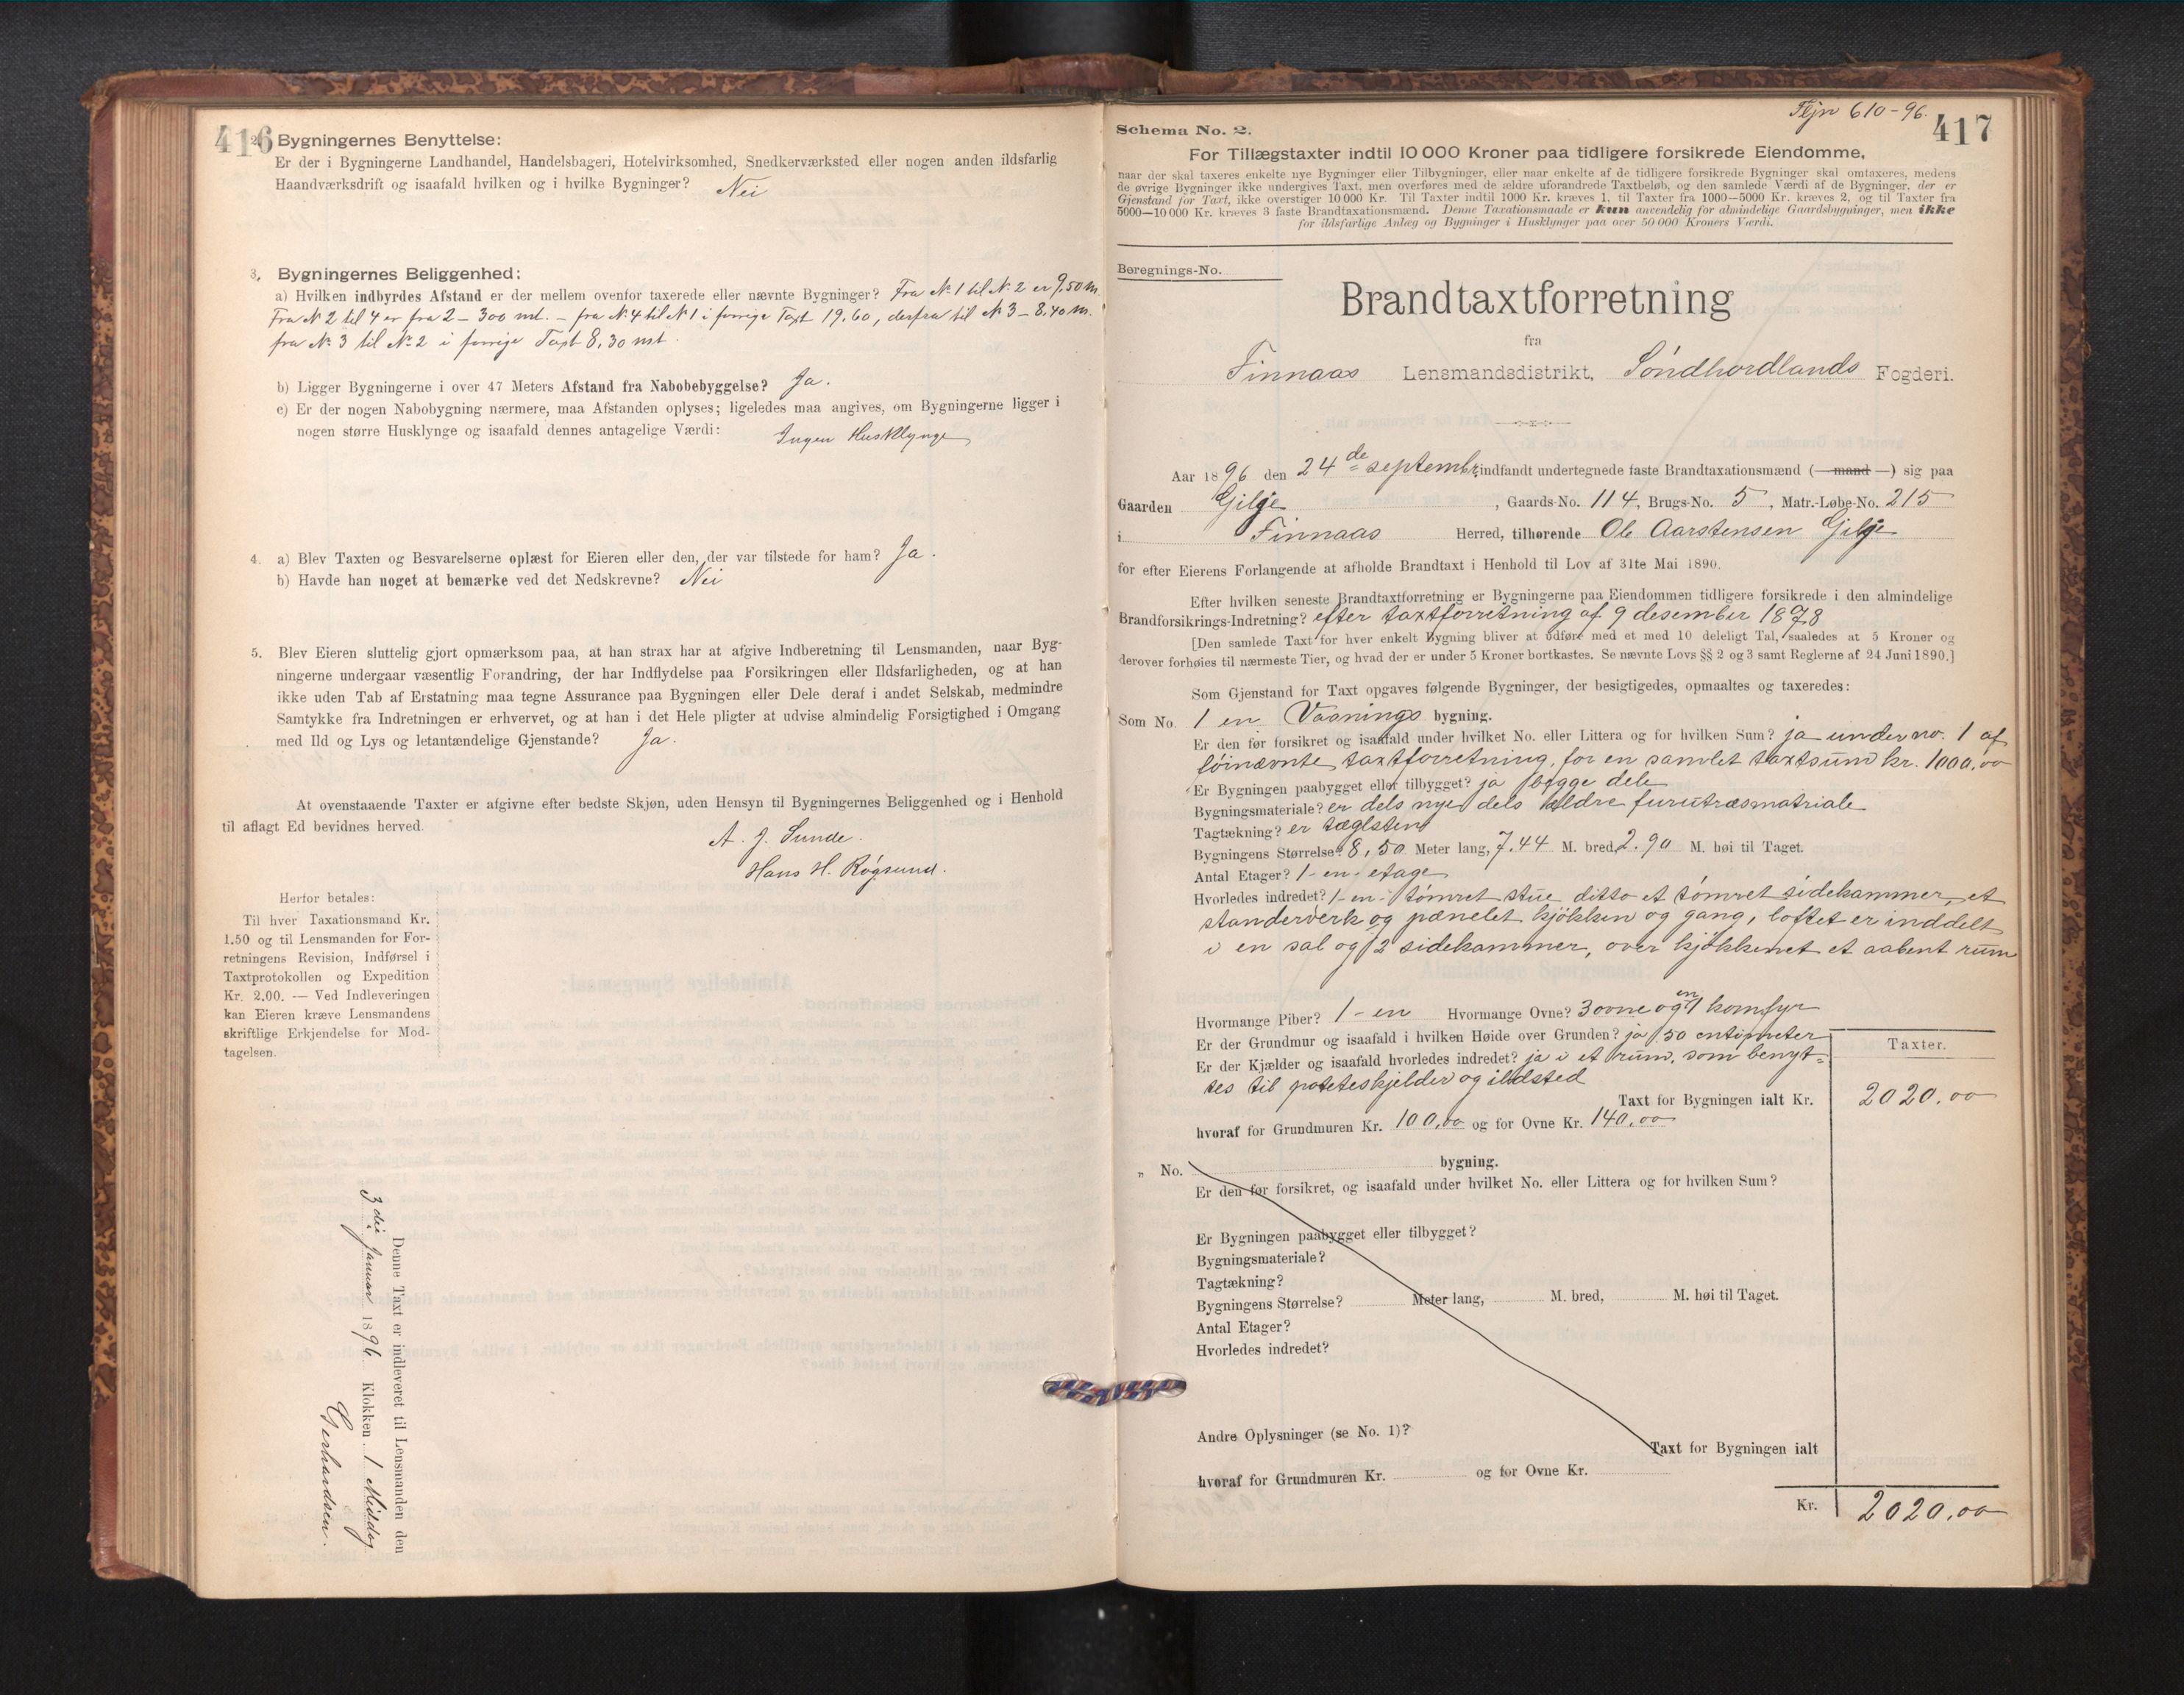 416
2. Bygningernes Benyttelse:
Er der i Bygningerne Landhandel, Handelsbageri, Hotelvirksomhed, Snedkerværksted eller nogen anden ildsfarlig
Haandværksdrift og isaafald hvilken og i hvilke Bygninger? Nei
3. Bygningernes Beliggenhed:
a) Hvilken indbyrdes Afstand er der mellem ovenfor taxerede eller nævnte Bygninger? Fra N. 1 til N. 2 er 9,50 m.
Fra N 2 til 4 er fra 2 – 300 mt. – fra N. 4 til N 1 i forrige Taxt 19,60, derfra til N 3 – 8,40 m.
fra N. 3 til N. 2 i forrige Taxt 8,30 mt.
b) Ligger Bygningerne i over 47 Meters Afstand fra Nabobebyggelse? Ja.
c) Er der nogen Nabobygning nærmere, maa Afstanden oplyses; ligeledes maa angives, om Bygningerne ligger i
nogen større Husklynge og isaafald dennes antagelige Værdi: Ingen Husklynge
4. a) Blev Taxten og Besvarelserne oplæst for Eieren eller den, der var tilstede for ham? Ja.
b) Havde han noget at bemærke ved det Nedskrevne? Nei
5. Blev Eieren sluttelig gjort opmærksom paa, at han strax har at afgive Indberetning til Lensmanden, naar Byg-
ningerne undergaar væsentlig Forandring, der har Indflydelse paa Forsikringen eller Ildsfarligheden, og at han
ikke uden Tab af Erstatning maa tegne Assurance paa Bygningen eller Dele deraf i andet Selskab, medmindre
Samtykke fra Indretningen er erhvervet, og at han i det Hele pligter at udvise almindelig Forsigtighed i Omgang
med Ild og Lys og letantændelige Gjenstande? Ja.
At ovenstaaende Taxter er afgivne efter bedste Skjøn, uden Hensyn til Bygningernes Beliggenhed og i Henhold
til aflagt Ed bevidnes herved.
A. J. Sunde.
Hans H. Røgsund.
Herfor betales:
Til hver Taxationsmand Kr.
1.50 og til Lensmanden for For-
retningens Revision, Indførsel i
Taxtprotokollen og Expedition
Kr. 2.00. — Ved Indleveringen
kan Eieren kræve Lensmandens
skriftlige Erkjendelse for Mod-
tagelsen.
Denne Taxt er indleveret til Lensmanden den
3die Januar 1896 Klokken 1 Middag
Gerhardsen.
Schema No. 2.
610–96.
417
For Tillægstaxter indtil 10 000 Kroner paa tidligere forsikrede Eiendomme,
naar der skal taxeres enkelte nye Bygninger eller Tilbygninger, eller naar enkelte af de tidligere forsikrede Bygninger skal omtaxeres, medens
de øvrige Bygninger ikke undergives Taxt, men overføres med de ældre uforandrede Taxtbeløb, og den samlede Værdi af de Bygninger, der er
Gjenstand for Taxt, ikke overstiger 10 000 Kr. Til Taxter indtil 1000 Kr. kræves 1, til Taxter fra 1000—5000 Kr. kræves 2, og til Taxter fra
5000—10 000 Kr. kræves 3 faste Brandtaxationsmænd. Denne Taxationsmaade er kun anvendelig for almindelige Gaardsbygninger, men ikke
for ildsfarlige Anlæg og Bygninger i Husklynger paa over 50 000 Kroners Værdi.
Beregnings-No.
Brandtaxtforretning
fra
Finnaas Lensmandsdistrikt, Söndhordlands Fogderi.
Aar 1896 den 24de septemb. indfandt undertegnede faste Brandtaxationsmænd (— mand —) sig paa
Gaarden Gilje, Gaards-No. 114, Brugs-No. 5, Matr.-Løbe-No. 215
i Finnaas Herred, tilhørende Ole Aarstensen Gilje
for efter Eierens Forlangende at afholde Brandtaxt i Henhold til Lov af 31te Mai 1890.
Efter hvilken seneste Brandtaxtforretning er Bygningerne paa Eiendommen tidligere forsikrede i den almindelige
Brandforsikrings-Indretning? efter taxtforretning af 9 desember 1878
[Den samlede Taxt for hver enkelt Bygning bliver at udføre med et med 10 deleligt Tal, saaledes at 5 Kroner og
derover forhøies til nærmeste Tier, og hvad der er under 5 Kroner bortkastes. Se nævnte Lovs §§ 2 og 3 samt Reglerne af 24 Juni 1890.]
Som Gjenstand for Taxt opgaves følgende Bygninger, der besigtigedes, opmaaltes og taxeredes:
Som No. 1 en Vaanings bygning.
Er den før forsikret og isaafald under hvilket No. eller Littera og for hvilken Sum? ja under no. 1 af
föinævnte taxtforretning, for en samlet taxtsum kr. 1000,00
Er Bygningen paabygget eller tilbygget? ja begge dele
Bygningsmateriale? er dels nye dels ældre furutræsmatriale
Tagtækning? er tæglsten
Bygningens Størrelse? 8,50 Meter lang, 7.44 M. bred, 2.90 M. høi til Taget.
Antal Etager? 1- en- etage
Hvorledes indredet? 1- en- tömret stue ditto et tömret sidekammer, et
standerverk og pænelet kjökken og gang, loftet er inddelt
i en sal og 2 sidekammer, over kjökkenet et aabent rum
Hvormange Piber? 1 – en Hvormange Ovne? 3 ovne og en 1 komfyr
Er der Grundmur og isaafald i hvilken Høide over Grunden? ja 50 centimeter
Er der Kjælder og isaafald hvorledes indredet? ja i et rum, som benyt=
tes til poteteskjelder og ildsted
Taxter.
Taxt for Bygningen ialt Kr. 2020.00
hvoraf for Grundmuren Kr. 100,00 og for Ovne Kr. 140,00
„ No. bygning.
Er den før forsikret, og isaafald under hvilket No. eller Littera og for hvilken Sum?
Er Bygningen paabygget eller tilbygget?
Bygningsmateriale?
Tagtækning?
Bygningens Størrelse? Meter lang, M. bred, M. høi til Taget.
Antal Etager?
Hvorledes indredet?
Andre Oplysninger (se No. 1)?
Taxt for Bygningen ialt
hvoraf for Grundmuren Kr. og for Ovne Kr.
Kr. 2020,00